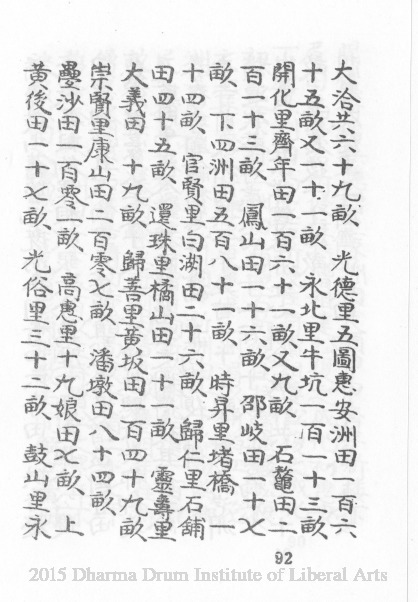 大洽共六十九畝　光德里五圖惠安洲田一百六
十五畝又一十一畝　永北里牛坑一百一十三畝
開化里齊年田一百六十一畝又九畝　石鼇田二
百一十三畝　鳳山田一十六畝　邵岐田一十七
畝　下四洲田五百八十一畝　時昇里堵橋　一
十四畝　官賢里白湖田二十六畝　歸仁里石舖
田四十五畝　還珠里橘山田一十一畝　靈壽里
大義田　十九畝　歸善里黃坂田一百四十九畝
崇賢里康山田二百零七畝　潘墩田八十四畝
疊沙田一百零一畝　高惠里十九娘田七畝　上
黃後田一十七畝　光俗里三十二畝　鼓山里永
92
2015 Dharma Drum Institute of Liberal Arts